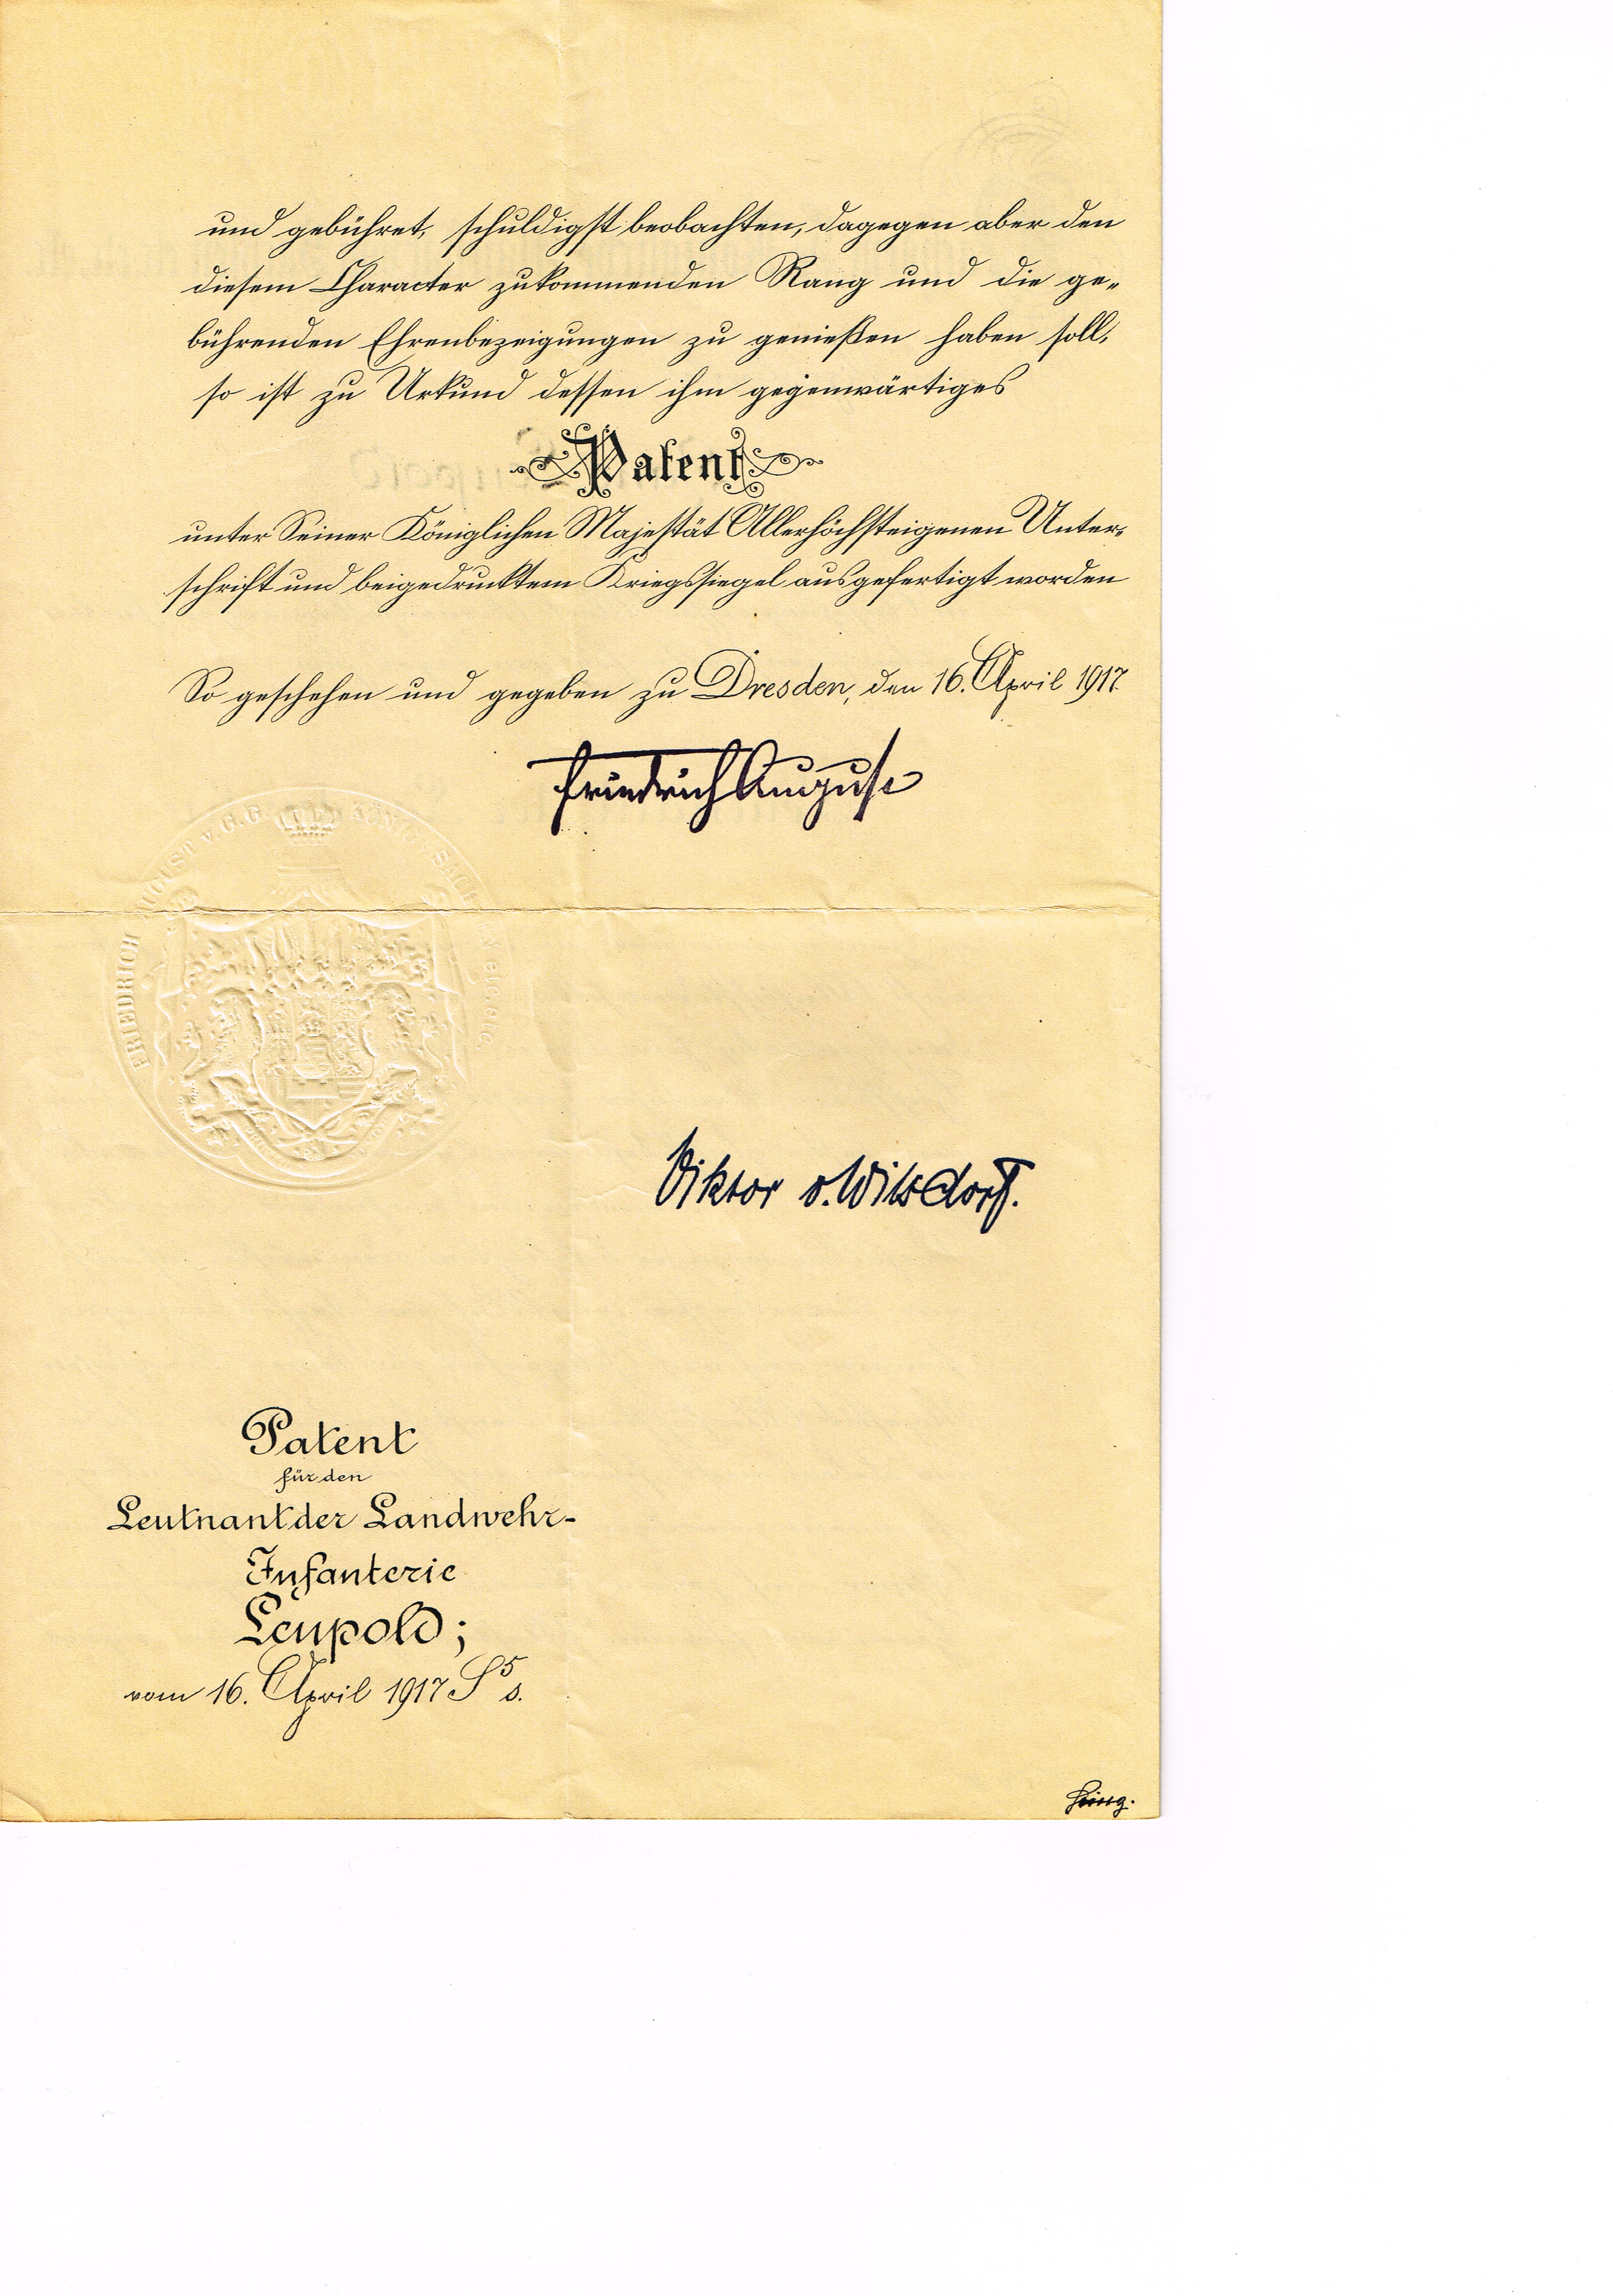 und gebühret, schuldigst beobachten, dagegen aber den
diesem Character zukommenden Rang und die ge-
bührenden Ehrenbezeigungen zu genießen haben soll,
so ist zu Urkund dessen ihm gegenwärtiges
Patent
unter Seiner Königlichen Majestät Allerhöchsteigenen Unter-
schrift und beigedrucktem Kriegssiegel ausgefertigt worden
So geschehen und gegeben zu Dresden, den 16. April 1917.
Friedrich August
FRIEDRICH AUGUST v. G. G. KÖNIG v. SACHSEN etc. etc.
Viktor v. Wilsdorf.
Patent
für den
Leutnant der Landwehr-
Infanterie
Leupold;
vom 16. April 1917 S 5 s.